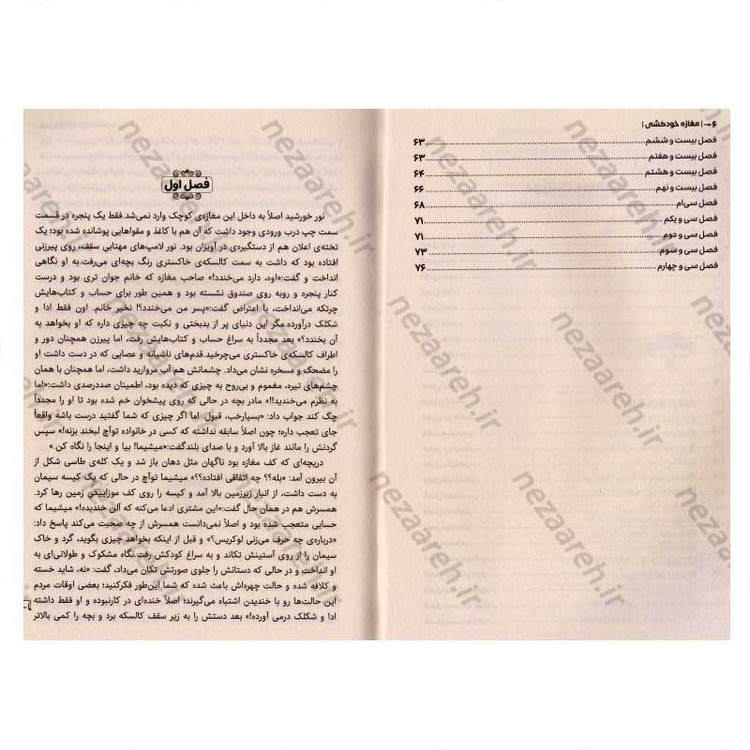 ۶ → | مغازه خودکشی |
فصل بیست و ششم ۶۳
فصل بیست و هفتم ۶۳
فصل بیست و هشتم ۶۴
فصل بیست و نهم ۶۶
فصل سی‌ام ۶۸
فصل سی و یکم ۷۱
فصل سی و دوم ۷۱
فصل سی و سوم ۷۳
فصل سی و چهارم ۷۶
فصل اول
نور خورشید اصلاً به داخل این مغازه‌ی کوچک وارد نمی‌شد.فقط یک پنجره در قسمت
سمت چپ درب ورودی وجود داشت که آن هم با کاغذ و مقواهایی پوشانده شده بود؛ یک
تخته‌ی اعلان هم از دستگیره‌ی در آویزان بود. نور لامپ‌های مهتابی سقف، روی پیرزنی
افتاده بود که داشت به سمت کالسکه‌ی خاکستری رنگ بچه‌ای می‌رفت.به او نگاهی
انداخت و گفت:«اوه، دارد می‌خندد!» صاحب مغازه که خانم جوان تری بود و درست
کنار پنجره و روبه روی صندوق نشسته بود و همین طور برای حساب و کتاب‌هایش
چرتکه می‌انداخت، با اعتراض گفت:«پسر من می‌خندد؟! نخیر خانم. اون فقط ادا و
شکلک درآورده.مگر این دنیای پر از بدبختی و نکبت چه چیزی داره که او بخواهد به
آن بخندد؟» بعد مجدداً به سراغ حساب و کتاب‌هایش رفت، اما پیرزن همچنان دور و
اطراف کالسکه‌ی خاکستری می‌چرخید.قدم‌های ناشیانه و عصایی که در دست داشت او
را مضحک و مسخره نشان می‌داد. چشمانش هم آب مروارید داشت، اما همچنان با همان
چشم‌های تیره، مغموم و بی‌روح به چیزی که دیده بود، اطمینان صددرصدی داشت:«اما
به نظرم می‌خندید!!» مادر بچه در حالی که روی پیشخوان خم شده بود تا او را مجدداً
چک کند جواب داد: «بسیارخب، قبول. اما اگر چیزی که شما گفتید درست باشه واقعاً
جای تعجب داره؛ چون اصلاً سابقه نداشته که کسی در خانواده تواچ لبخند بزنه!» سپس
گردنش را مانند غاز بالا آورد و با صدای بلندگفت:«میشیما! بیا و اینجا را نگاه کن.»
دریچه‌ای که کف مغازه بود ناگهان مثل دهان باز شد و یک کله‌ی طاسی شکل از
آن بیرون آمد: «بله؟؟ چه اتفاقی افتاده؟؟» میشیما تواچ در حالی که یک کیسه سیمان
به دست داشت، از انبار زیرزمین بالا آمد و کیسه را روی کف موزاییکی زمین رها کرد.
همسرش هم در همان حال گفت:«این مشتری ادعا می‌کنه که آلن خندیده!» میشیما که
حسابی متعجب شده بود و اصلاً نمی‌دانست همسرش از چه صحبت می‌کند پاسخ داد:
«درباره‌ی چه حرف می‌زنی لوکریس؟» و قبل از اینکه بخواهد چیزی بگوید، گرد و خاک
سیمان را از روی آستینش تکاند و به سراغ کودکش رفت.نگاه مشکوک و طولانی‌ای به
او انداخت و در حالی که دستانش را جلوی صورتش تکان می‌داد، گفت: «نه، شاید خسته
و کلافه شده و حالت چهره‌اش باعث شده که شما این‌طور فکرکنید؛ بعضی اوقات مردم
این حالت‌ها رو با خندیدن اشتباه می‌گیرند؛ اصلاً خنده‌ای در کارنبوده و او فقط داشته
ادا و شکلک درمی آورده!» بعد دستش را به زیر سقف کالسکه برد و بچه را کمی بالاتر
nezaareh.ir
nezaareh.ir
nezaareh.ir
nezaareh.ir
nezaareh.ir
nezaareh.ir
nezaareh.ir
nezaareh.ir